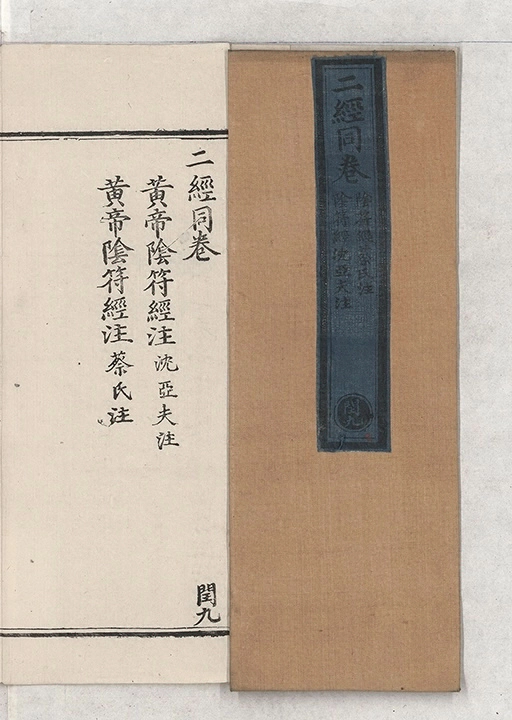 二經同卷
陰符經蔡氏注
陰符經沈亞夫注
閏九
二經同卷
黄帝陰符經注 沈亞夫注
黄帝陰符經注 蔡氏注
閏九